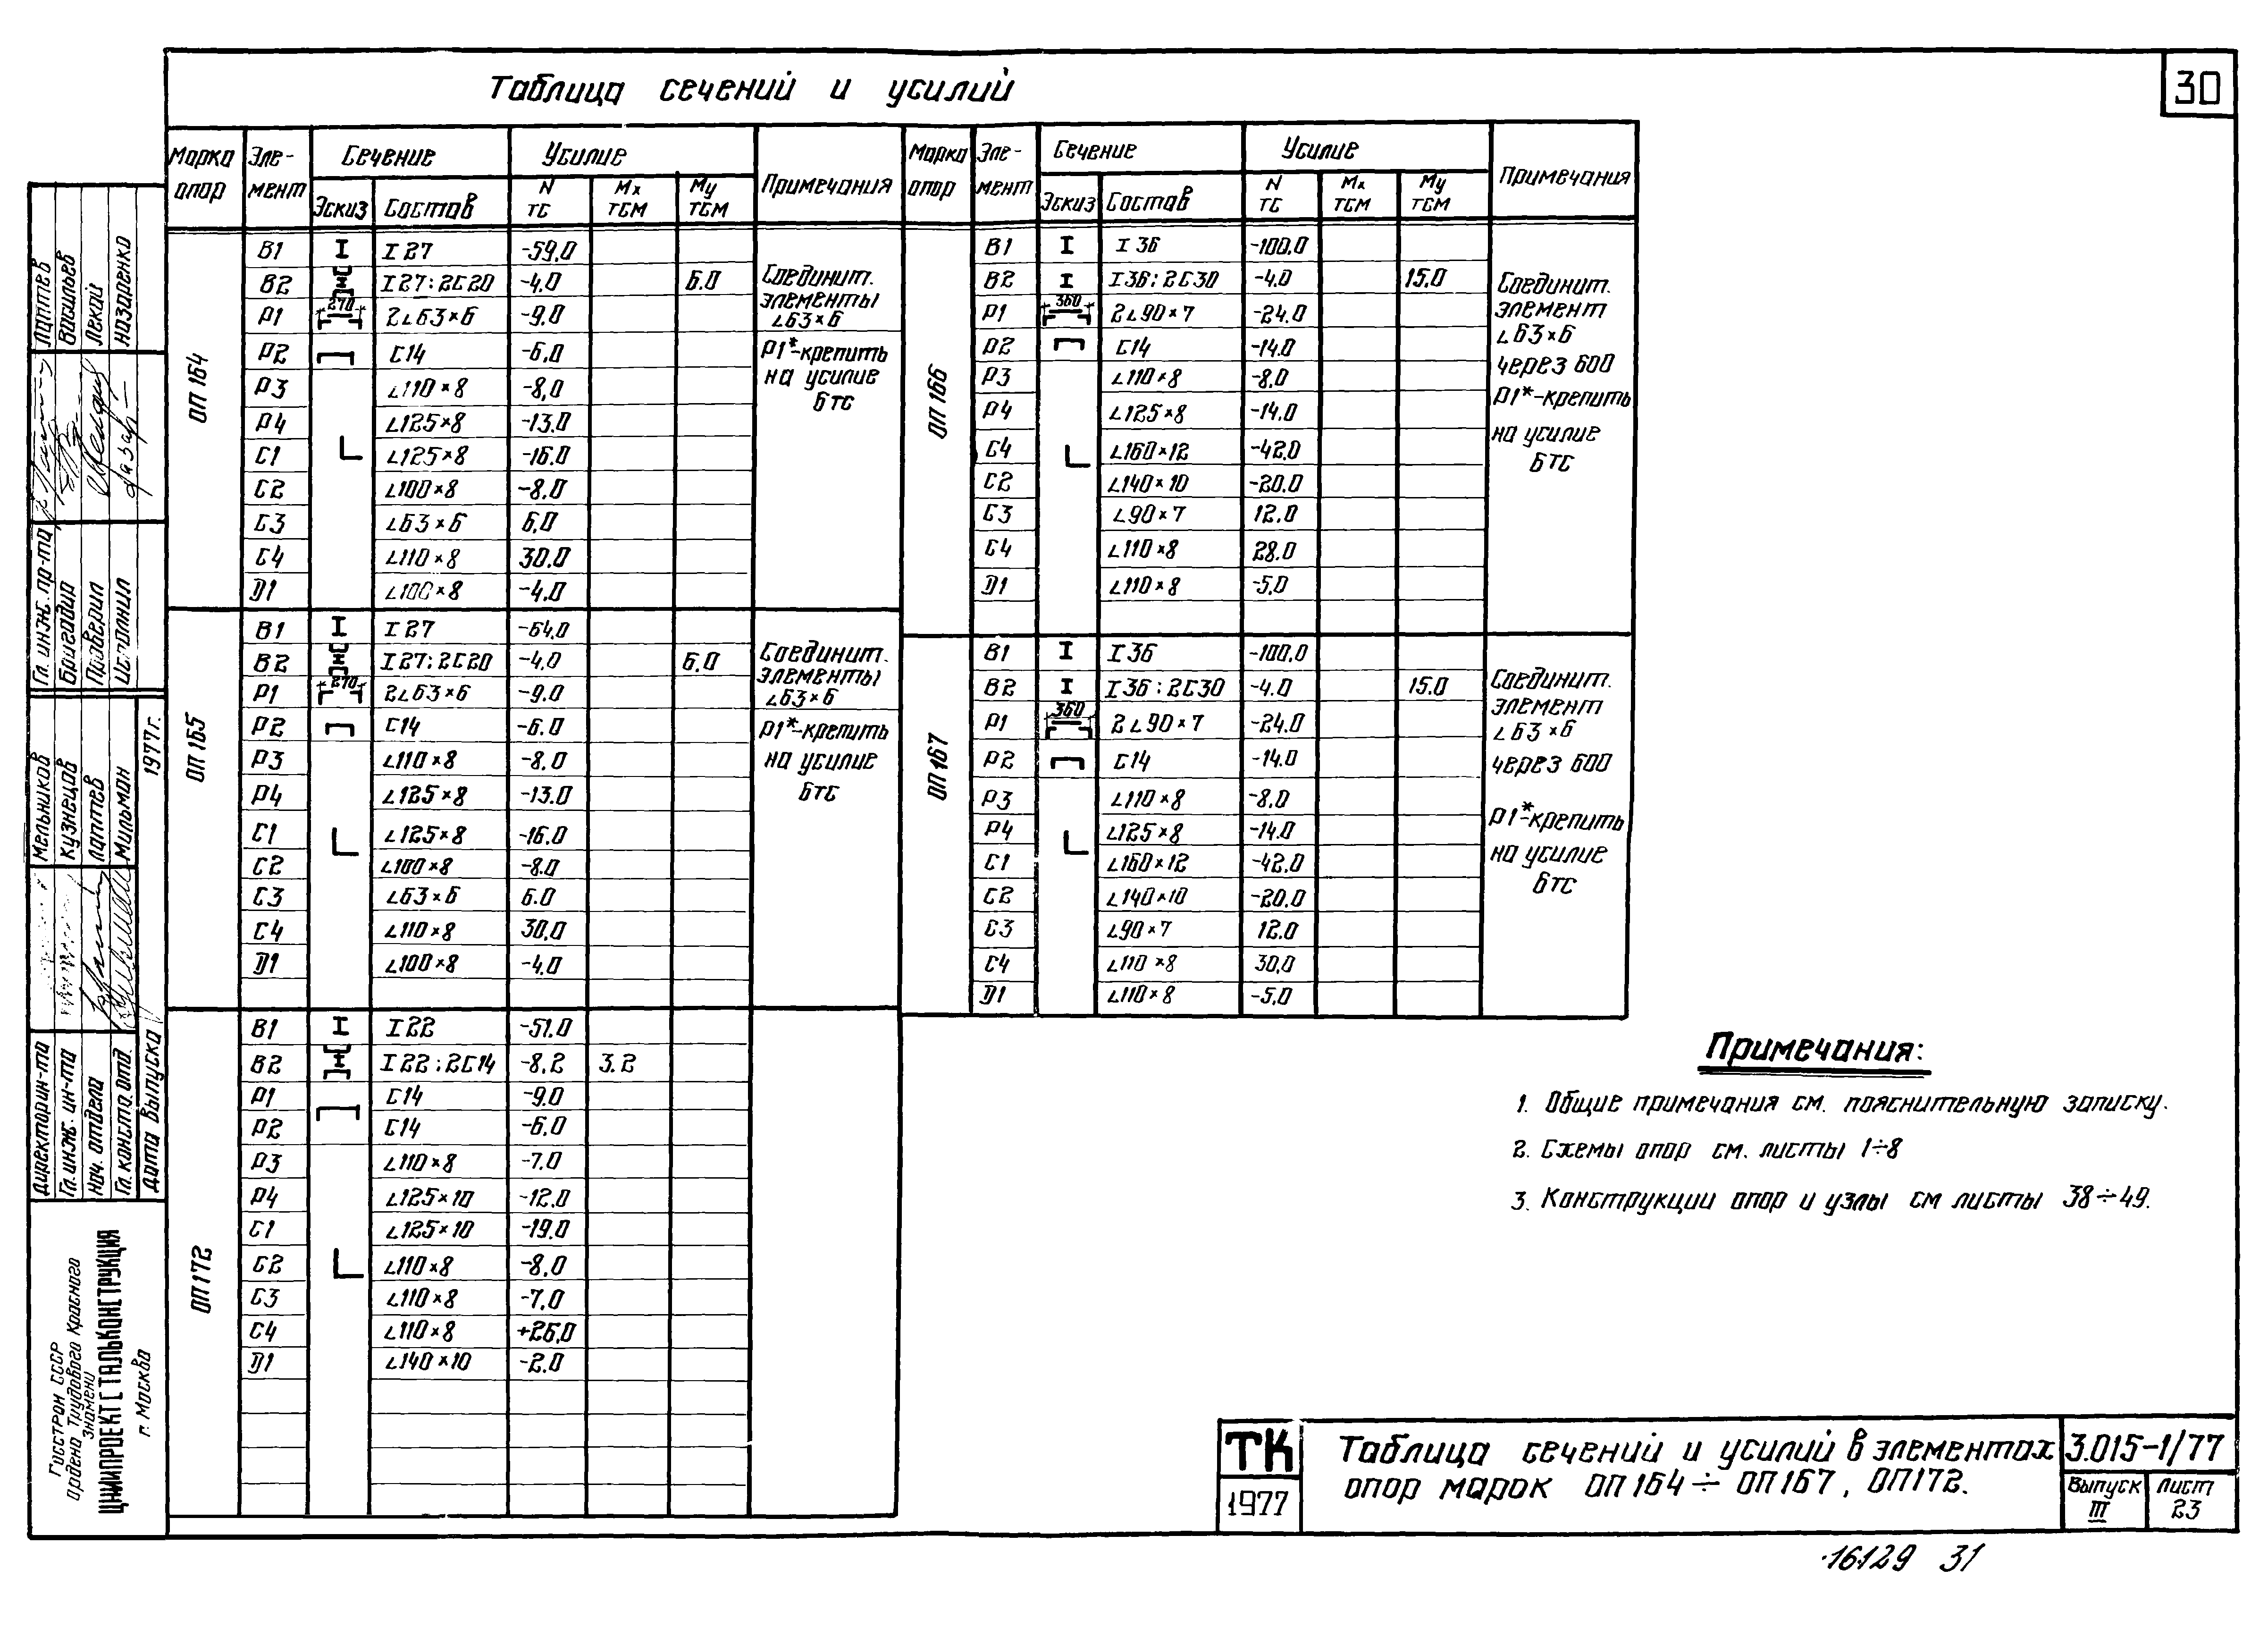 30
Таблица сечений и усилий
Марка опор Эле-мент Сечение Усилие Примечания
Эскиз Состав N тс Mx тсм My тсм
ОП 164
В1 I 27 -59,0
В2 I 27; 2С20 -4,0 6.0
Р1 270 2∟63×6 -9.0
Р2 С14 -6,0
Р3 ∟110×8 -8,0
Р4 ∟125×8 -13.0
С1 ∟125×8 -16.0
С2 ∟100×8 -8.0
С3 ∟63×6 6,0
С4 ∟110×8 30.0
Д1 ∟100×8 -4.0
Соединит.
элементы
∟63×6
Р1*-крепить
на усилие
6тс
ОП 165
В1 I 27 -64,0
В2 I 27; 2С20 -4,0 6.0
Р1 270 2∟63×6 -9.0
Р2 С14 -6.0
Р3 ∟110×8 -8.0
Р4 ∟125×8 -13.0
С1 ∟125×8 -16.0
С2 ∟100×8 -8.0
С3 ∟63×6 6.0
С4 ∟110×8 30,0
Д1 ∟100×8 -4,0
Соединит.
элементы
∟63×6
Р1*-крепить
на усилие
6тс
ОП172
В1 I 22 -51.0
В2 I 22; 2С14 -8,2 3.2
Р1 С14 -9.0
Р2 С14 -6.0
Р3 ∟110×8 -7.0
Р4 ∟125×10 -12.0
С1 ∟125×10 -19.0
С2 ∟110×8 -8,0
С3 ∟110×8 -7,0
С4 ∟110×8 +26,0
Д1 ∟140×10 -2.0
Марка опор Эле-мент Сечение Усилие Примечания
Эскиз Состав N тс Mx тсм My тсм
ОП 166
В1 I 36 -100,0
В2 I 36; 2С30 -4.0 15.0
Р1 360 2∟90×7 -24.0
Р2 С14 -14.0
Р3 ∟110×8 -8.0
Р4 ∟125×8 -14.0
С4 ∟160×12 -42.0
С2 ∟140×10 -20.0
С3 ∟90×7 12.0
С4 ∟110×8 28.0
Д1 ∟110×8 -5,0
Соединит.
элемент
∟63×6
через 600
Р1*-крепить
на усилие
6тс
ОП167
В1 I 36 -100,0
В2 I 36; 2С30 -4.0 15.0
Р1 360 2∟90×7 -24.0
Р2 С14 -14.0
Р3 ∟110×8 -8.0
Р4 ∟125×8 -14.0
С1 ∟160×12 -42.0
С2 ∟140×10 -20.0
С3 ∟90×7 12.0
С4 ∟110×8 30,0
Д1 ∟110×8 -5,0
Соединит.
элемент
∟63×6
через 600
Р1*-крепить
на усилие
6тс
Примечания:
1. Общие примечания см. пояснительную записку.
2. Схемы опор см. листы 1÷8
3. Конструкции опор и узлы см листы 38÷49.
Гл. инж. пр-та Лаптев
Бригадир Васильев
Проверил Лекай
Исполнил Назаренко
Директор ин-та Мельников
Гл. инж. ин-та Кузнецов
Нач. отдела Лаптев
Гл. констр. отд. Мильман
Дата выпуска 1977г.
Госстрой СССР
ордена Трудового Красного
Знамени
ЦНИИПРОЕКТСТАЛЬКОНСТРУКЦИЯ
г. Москва
ТК
1977
Таблица сечений и усилий в элементах
опор марок ОП164÷ОП167, ОП172.
3.015-1/77
Выпуск III
Лист 23
16129 31